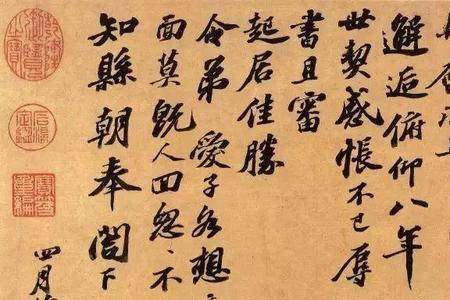 邂逅俯仰八年
世契感悵不已辱
書且審
起居佳勝
令弟愛子各想
面莫既人回怱〻不
知縣朝奉閤下
四月
石渠定鑑
寶笈重編